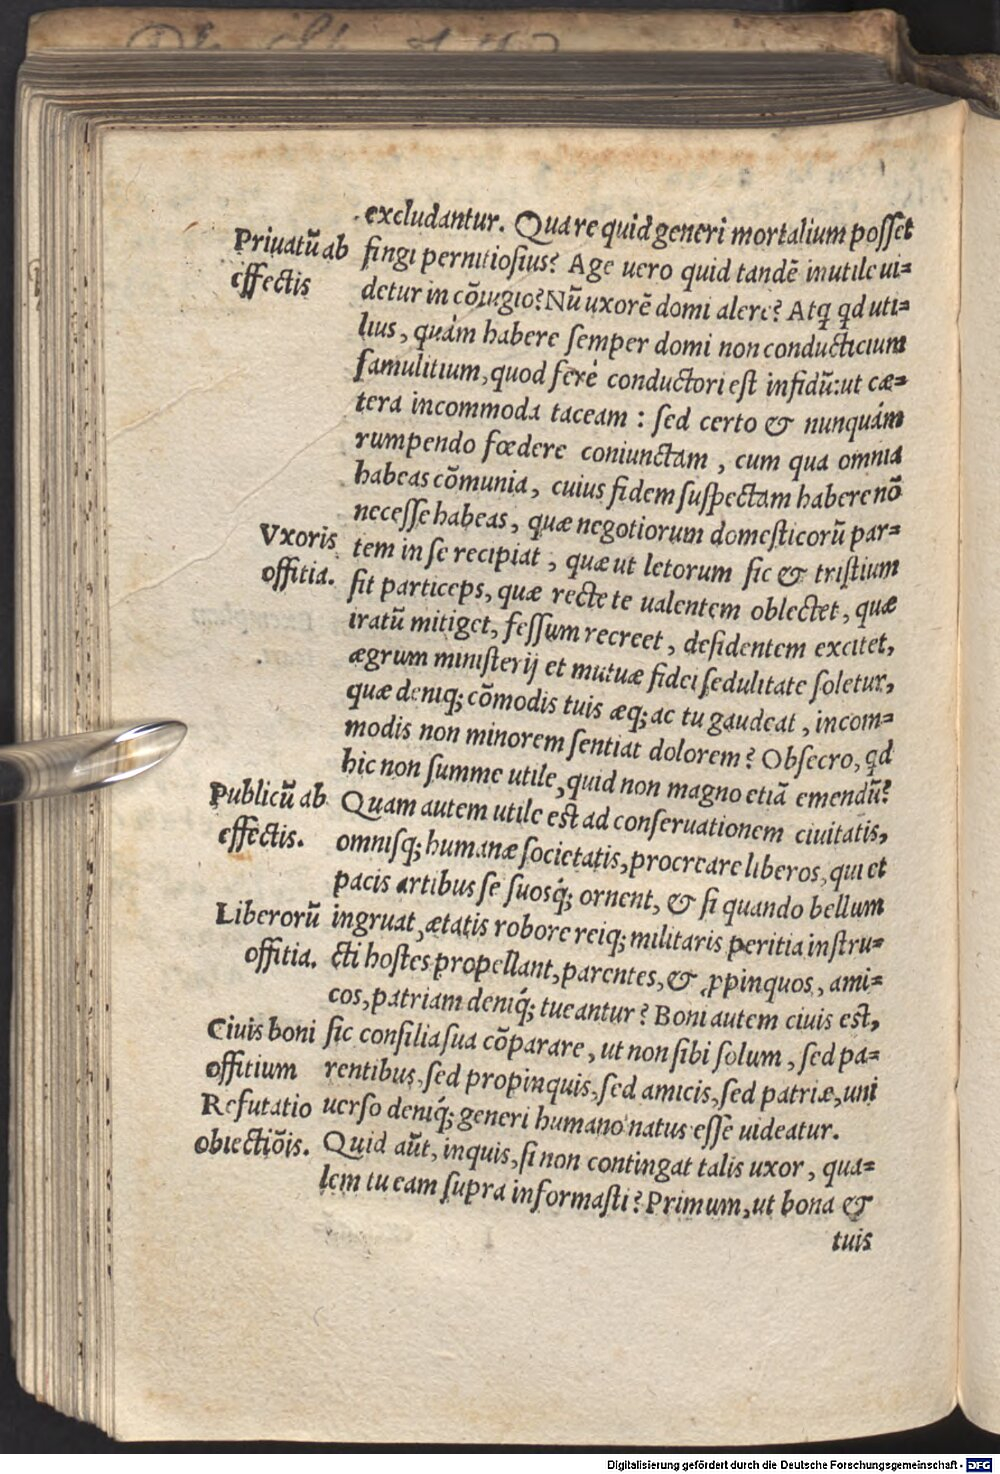 excludantur. Quare quid generi mortalium posset
Priuatū ab
effectis
fingi pernitiosius? Age uero quid tandē inutile ui=
detur in cōiugio? Nū uxorē domi alere? Atq; qd uti=
lius, quàm habere semper domi non conducticium
famulitium, quod ferè conductori est infidū: ut cæ=
tera incommoda taceam: sed certo & nunquàm
rumpendo fœdere coniunctam, cum qua omnia
habeas cōmunia, cuius fidem suspectam habere nō
necesse habeas, quæ negotiorum domesticorū par=
Vxoris
offitia.
tem in se recipiat, quæ ut letorum sic & tristium
sit particeps, quæ recte te ualentem oblectet, quæ
iratū mitiget, fessum recreet, desidentem excitet,
ægrum ministerij et mutuæ fidei sedulitate soletur,
quæ deniq; cōmodis tuis æq; ac tu gaudeat, incom=
modis non minorem sentiat dolorem? Obsecro, qd
hic non summe utile, quid non magno etiā emendū?
Publicū ab
effectis.
Quam autem utile est ad conseruationem ciuitatis,
omnisq; humanæ societatis, procreare liberos, qui et
pacis artibus se suosq́; ornent, & si quando bellum
Liberorū
offitia.
ingruat, ætatis robore reiq; militaris peritia instru=
cti hostes propellant, parentes, & ꝓpinquos, ami=
cos, patriam deniq́; tueantur? Boni autem ciuis est,
Ciuis boni
offitium
sic consilia sua cōparare, ut non sibi solum, sed pa=
rentibus, sed propinquis, sed amicis, sed patriæ, uni
Refutatio
obiectiōis.
uerso deniq́; generi humano natus esse uideatur.
Quid aūt, inquis, si non contingat talis uxor, qua=
lem tu eam supra informasti? Primum, ut bona &
tuis
Digitalisierung gefördert durch die Deutsche Forschungsgemeinschaft - DFG